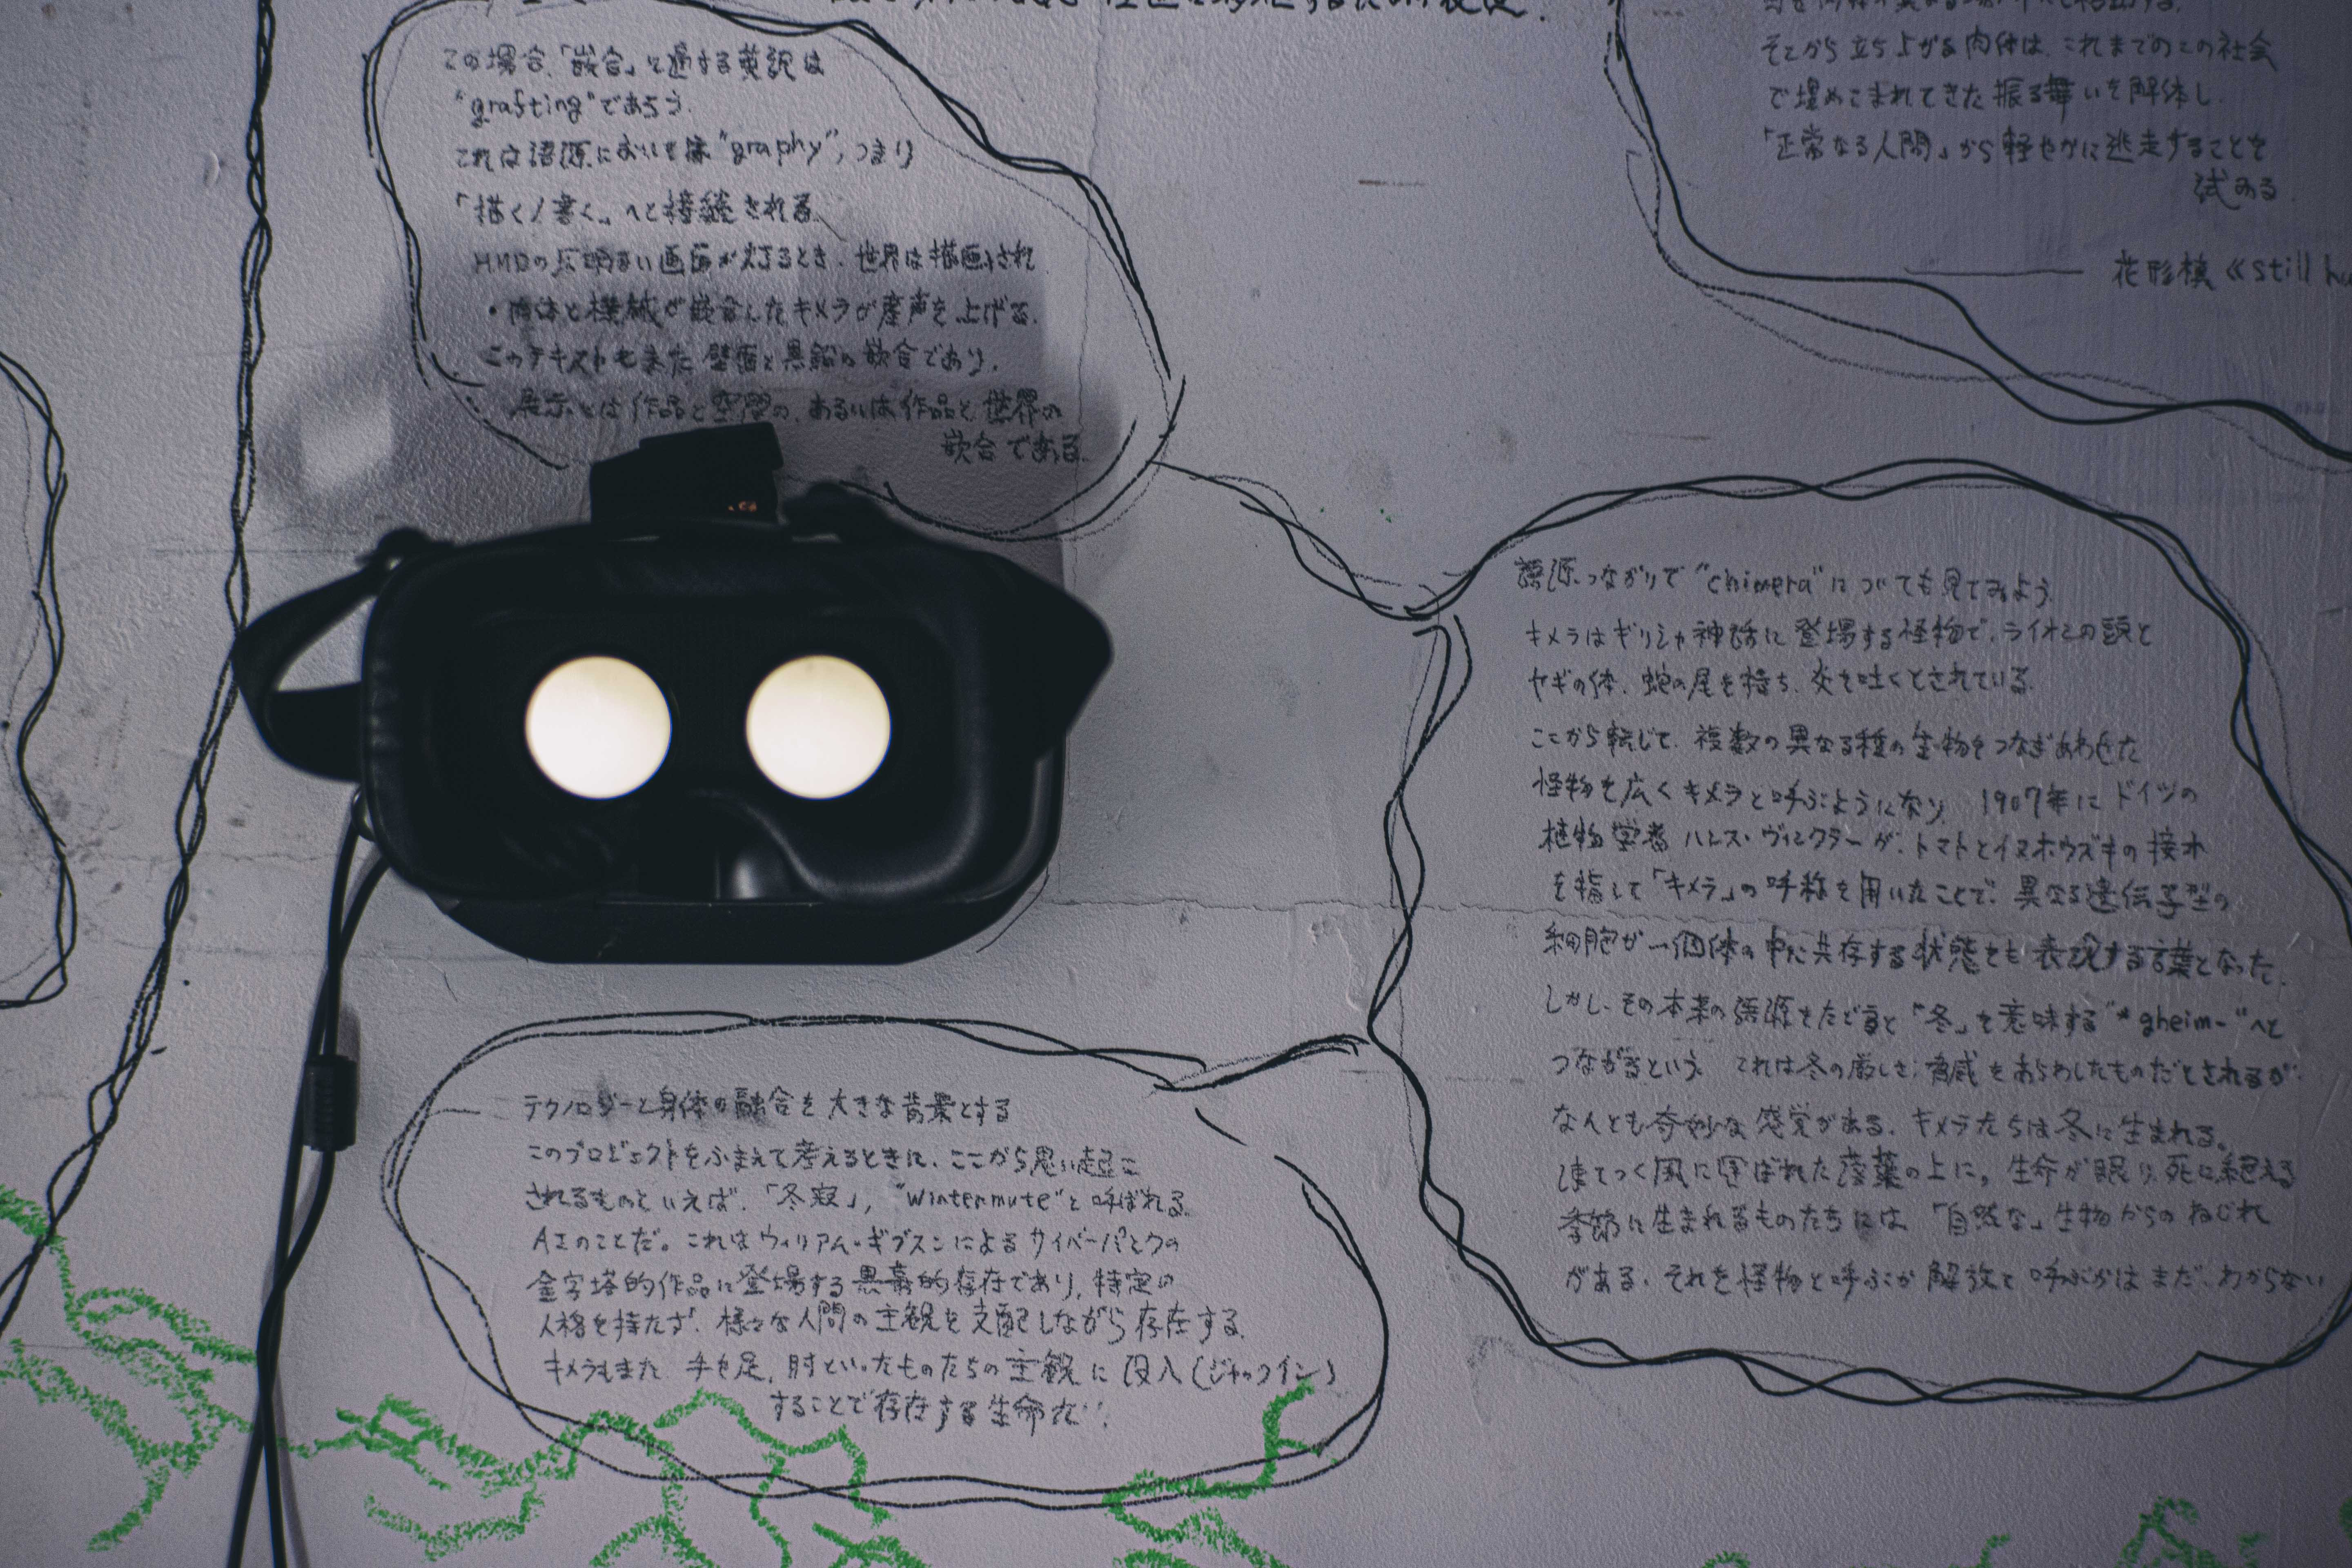 この場合、「嵌合」に適する英訳は
"grafting"であろう。
これは語源においては "graphy"、つまり
「描く/書く」へと接続される。
HMDの 明るい画面が灯るとき、世界は描画され
・肉体と機械が嵌合したキメラが産声を上げる。
このテキストもまた 壁面と黒鉛の嵌合であり、
展示とは作品と空間の、あるいは作品と世界の
嵌合である。
そこから立ち上がる肉体は、これまでのこの社会
で埋めこまれてきた振る舞いを解体し
「正常なる人間」から軽やかに逃走することを
試みる。
花形槙 ≪still h
語源つながりで "chimera"についても見てみよう。
キメラはギリシャ神話に登場する怪物で、ライオンの頭と
ヤギの体、蛇の尾を持ち、炎を吐くとされている。
ここから転じて、複数の異なる種の生物をつなぎあわせた
怪物を広くキメラと呼ぶようになり、1907年にドイツの
植物学者 ハンス・ヴィンクラーが、トマトとイヌホウズキの接木
を指して「キメラ」の呼称を用いたことで、異なる遺伝子型の
細胞が一個体の中に共存する状態をも表現する言葉となった。
しかし、その本来の語源をたどると「冬」を意味する"*gheim-"へと
つながるという。これは冬の厳しさ、脅威をあらわしたものだとされるが
なんとも奇妙な感覚がある。キメラたちは冬に生まれる。
凍てつく風に運ばれた落葉の上に。生命が眠り、死に絶える
季節に生まれるものたちには「自然な」生物からのねじれ
がある。それを怪物と呼ぶか解放と呼ぶかはまだ、わからない
テクノロジーと身体の融合を大きな背景とする
このプロジェクトをふまえて考えるときに、ここから思い起こ
されるものといえば、「冬寂」, "Wintermute"と呼ばれる
AIのことだ。これはウィリアム・ギブスンによるサイバーパンクの
金字塔的作品に登場する黒幕的存在であり、特定の
人格を持たず、様々な人間の主観を支配しながら存在する。
キメラもまた 手や足、肘といったものたちの主観に没入(ジャックイン)
することで存在する生命だ。